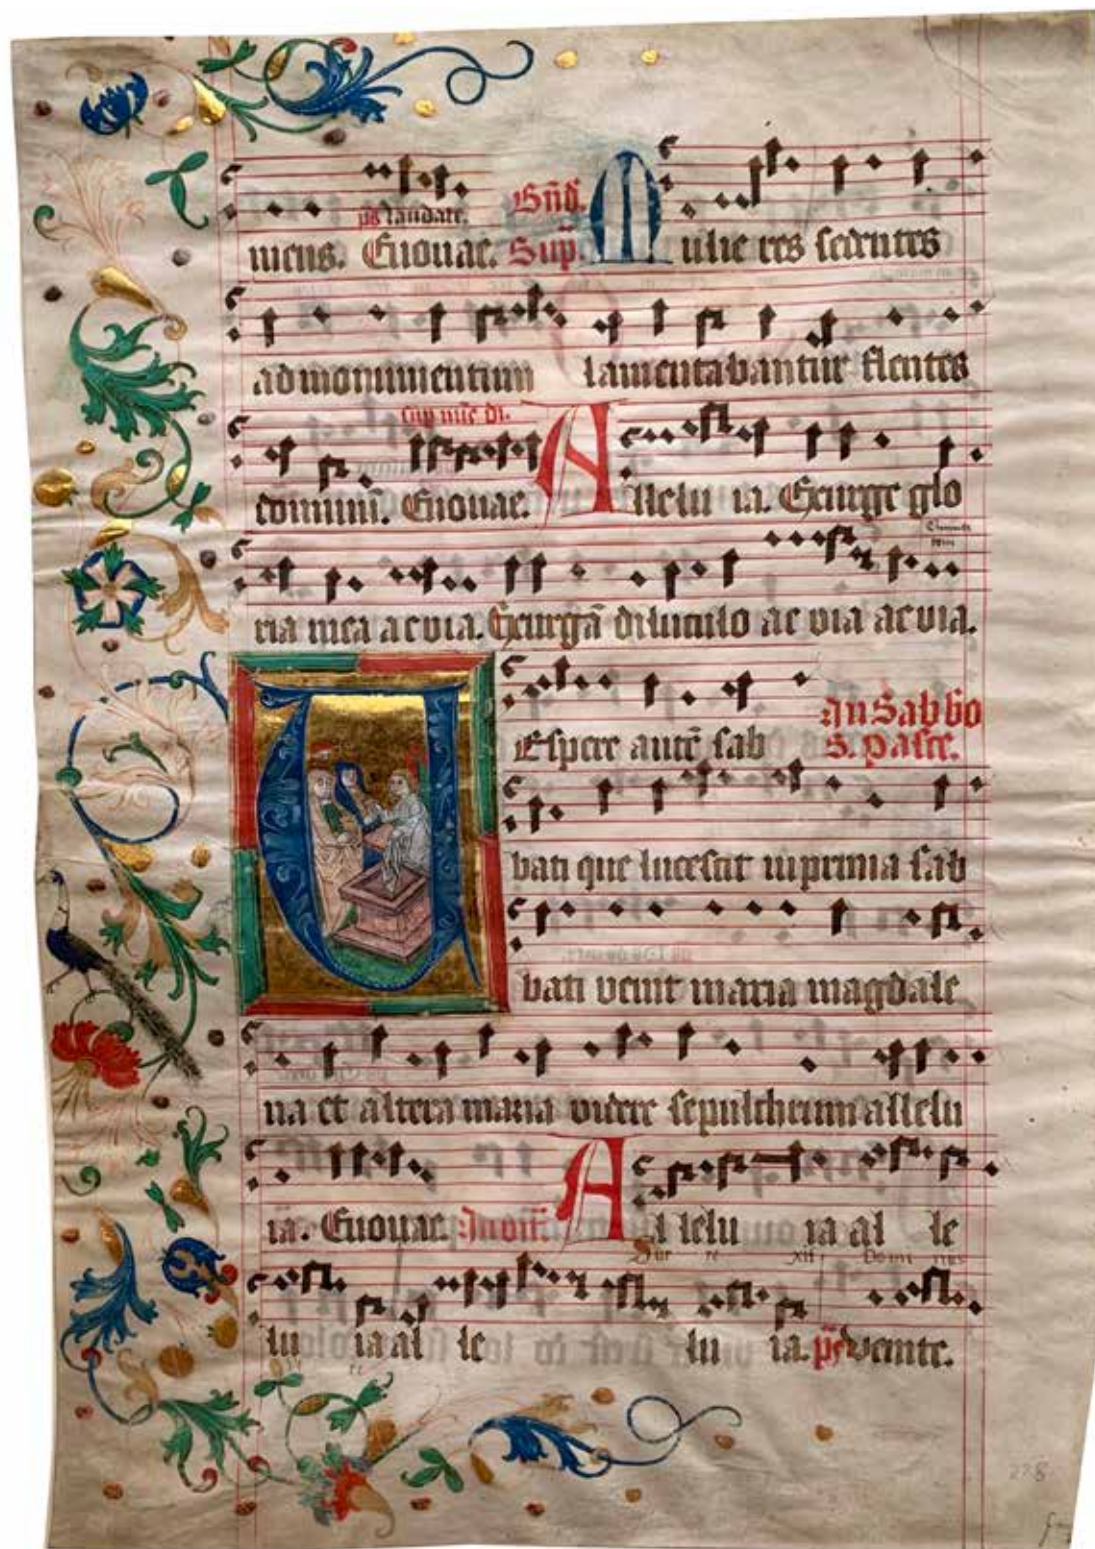 ps laudate. Bñd.
meus. Euouae. Sup. Mulie res sedentes
ad monumentum lamentabantur flentes
sup nūc di.
dominū. Euouae. Allelu ia. Exurge glo
ria mea aevia. Exurgā diluculo ae via aevia.
In Sabbō
VEspere autē sab S. pasce.
bati que lucescit in prima sab
bati venit maria magdale
na et altera maria videre sepulchrum allelu
ia. Euouae. Al lelu ia al le
Sur re xit Domi nus
lu ia al le lu ia. ps Venite.
278